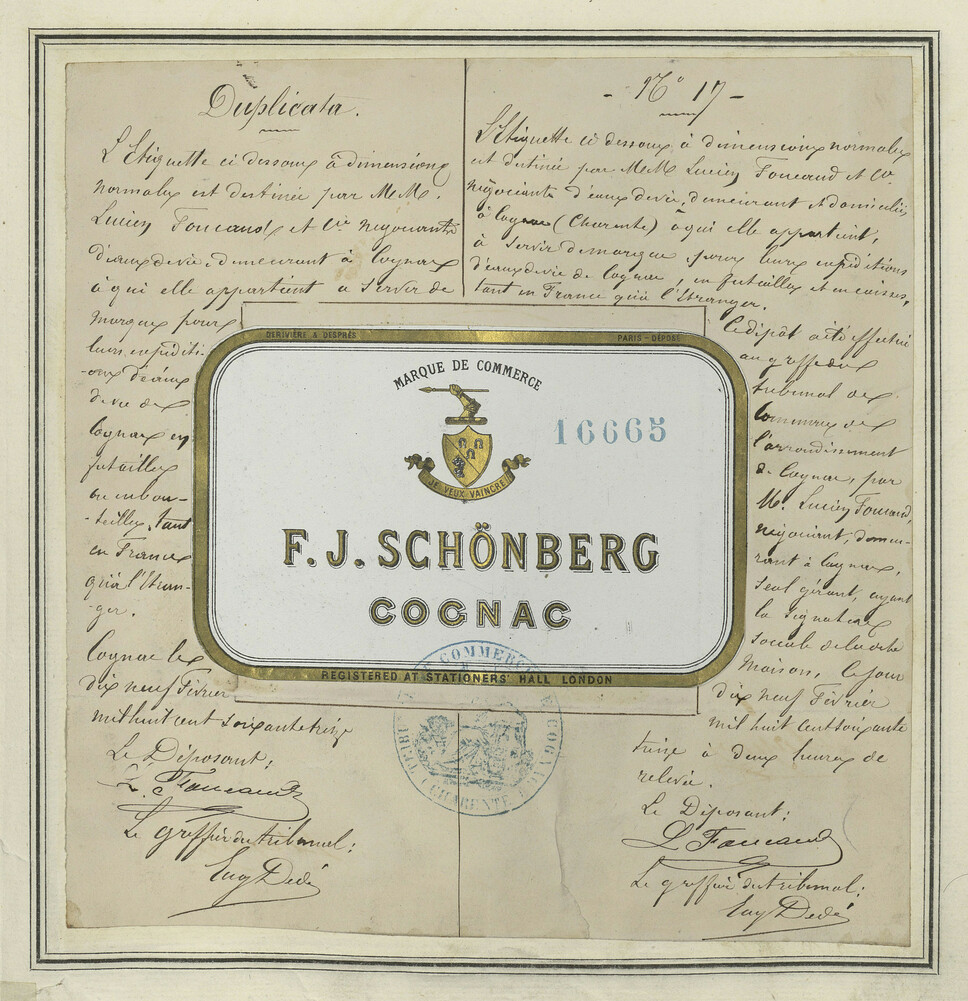 Duplicata.
L'Etiquette ci dessous à dimensions
normales est destinée par M.M.
Lucien Foucaud et Cie négociants
d'eaux de vie, demeurant à Cognac
à qui elle appartient a servir de
marque pour
leurs expéditi-
-ons d'eaux
de vie de
Cognac en
futailles
ou en bou-
-teilles, tant
en France
qu'à l'Etran-
-ger.
Cognac le
dix neuf Février
mil huit cent soixante treize
Le Déposant:
L. Foucaud
Le greffier du tribunal:
Eug Dedé
- No 17 -
L'Etiquette ci dessous à dimensions normales
est destinée par M.M. Lucien Foucaud et Cie
négociants d'eaux de vie, demeurant et domiciliés
à Cognac (Charente) à qui elle appartient,
à servir de marque, pour leurs expéditions
d'eaux de vie de Cognac, en futailles et en caisses,
tant en France qu'à l'Etranger.
Le dépôt a été effectué
au greffe du
tribunal de
Commerce de
l'arrondissement
de Cognac, par
M. Lucien Foucaud,
négociant, demeu-
rant à Cognac,
seul gérant, ayant
la signature
sociale de la dite
Maison, le jour
dix neuf Février
mil huit cent soixante
treize à deux heures de
relevée.
Le Déposant:
L Foucaud
Le greffier du tribunal:
Eug Dedé
DERIVIÈRE & DESPRÉS
PARIS - DÉPOSÉ
MARQUE DE COMMERCE
16665
JE VEUX VAINCRE
F. J. SCHÖNBERG
COGNAC
REGISTERED AT STATIONERS' HALL LONDON
COMMERCE
COGNAC
CHARENTE
TRIBUNAL